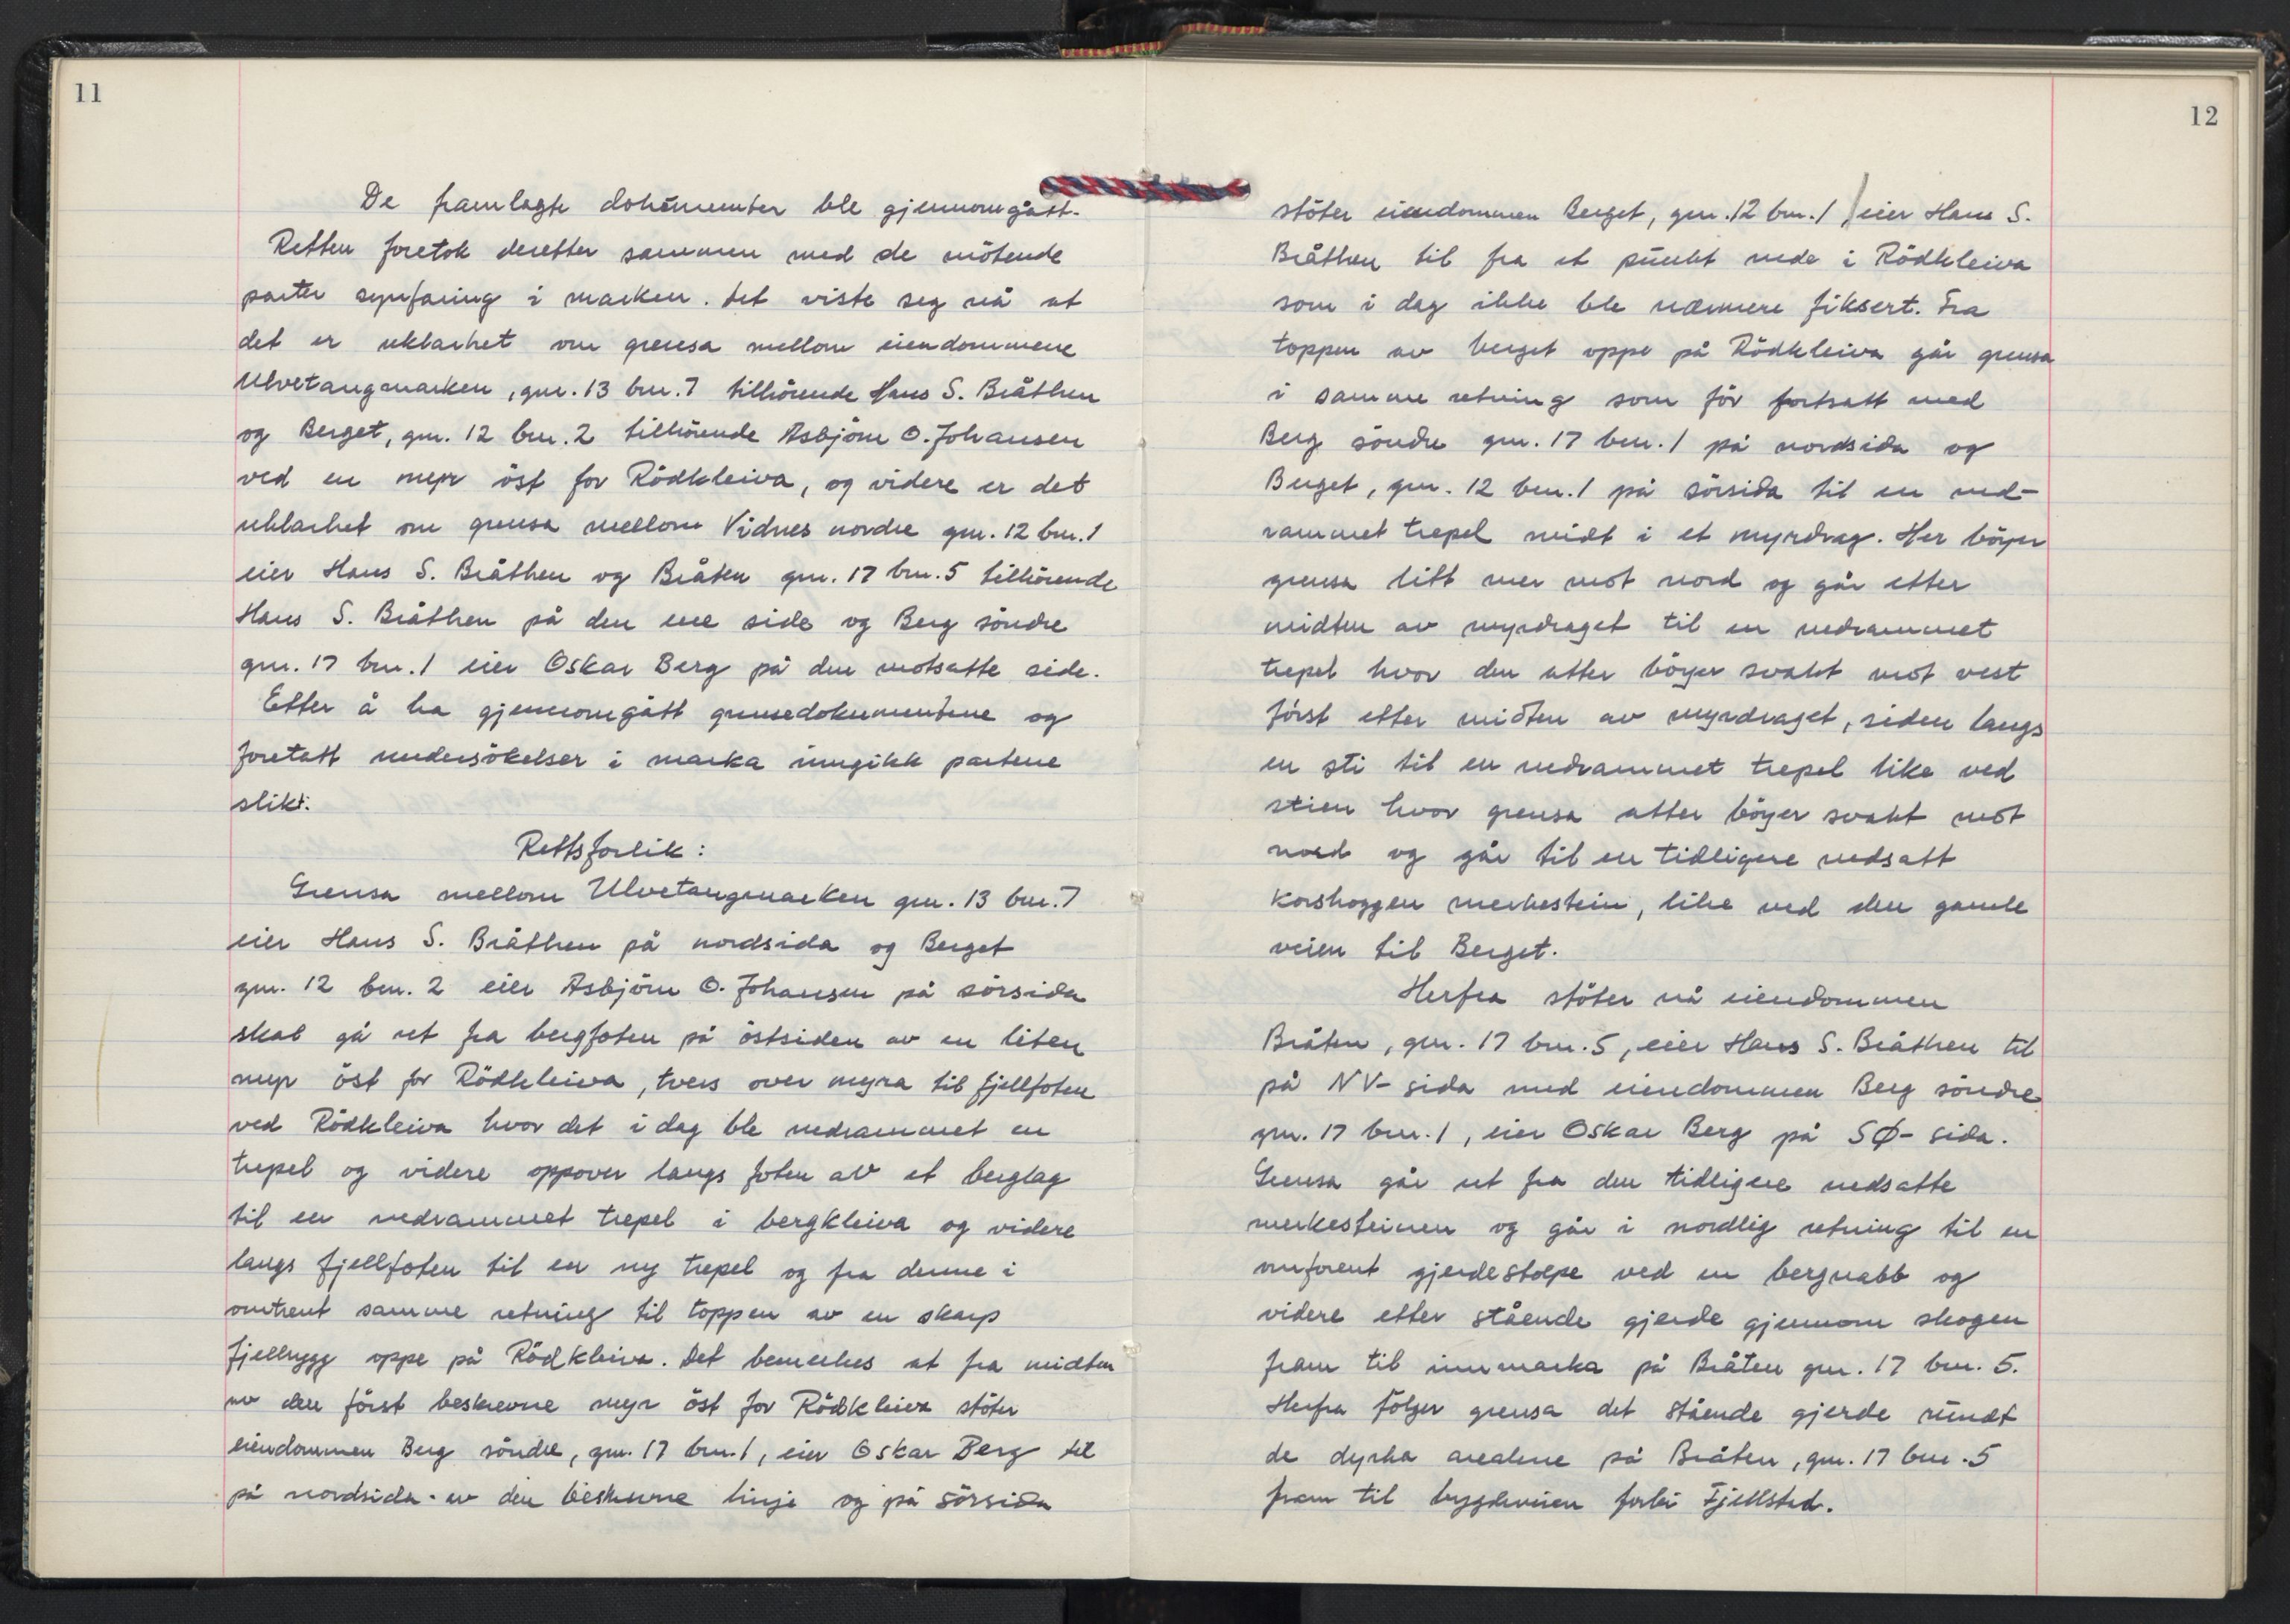 11
De framlagte dokumenter ble gjennomgått.
Retten foretok deretter sammen med de mötende
parter synfaring i marken. Det viste seg nå at
det er uklarhet om grensa mellom eiendommene
Ulvetangmarken, gnr. 13 bnr. 7 tilhörende Hans S. Bråthen
og Berget, gnr. 12 bnr. 2 tilhörende Asbjörn O. Johansen
ved en myr öst for Rödkleiva, og videre er det
uklarhet om grensa mellom Vidnes nordre gnr. 12 bnr. 1
eier Hans S. Bråthen og Bråten gnr. 17 bnr. 5 tilhörende
Hans S. Bråthen på den ene side og Berg söndre
gnr. 17 bnr. 1 eier Oskar Berg på den motsatte side.
Etter å ha gjennomgått grensedokumentene og
foretatt undersökelser i marka inngikk partene
slikt:
Rettsforlik:
Grensa mellom Ulvetangmarken gnr. 13 bnr. 7
eier Hans S. Bråthen på nordsida og Berget
gnr. 12 bnr. 2 eier Asbjörn O. Johansen på sörsida
skal gå ut fra bergfoten på östsiden av en liten
myr öst for Rödkleiva, tvers over myra til fjellfoten
ved Rödkleiva hvor det i dag ble nedrammet en
trepel og videre oppover langs foten av et berglag
til en nedrammet trepel i bergkleiva og videre
langs fjellfoten til en ny trepel og fra denne i
omtrent samme retning til toppen av en skarp
fjellrygg oppe på Rödkleiva. Det bemerkes at fra midten
av den först beskrevne myr öst for Rödkleiva stöter
eiendommen Berg söndre, gnr. 17 bnr. 1, eier Oskar Berg til
på nordsida av den beskrevne linje og på sörsida
12
stöter eiendommen Berget, gnr. 12 bnr. 1 / eier Hans S.
Bråthen til fra et punkt nede i Rödkleiva
som i dag ikke ble nærmere fiksert. Fra
toppen av berget oppe på Rödkleiva går grensa
i samme retning som för fortsatt med
Berg söndre gnr. 17 bnr. 1 på nordsida og
Berget, gnr. 12 bnr. 1 på sörsida til en ned-
rammet trepel midt i et myrdrag. Her böyer
grensa litt mer mot nord og går etter
midten av myrdraget til en nedrammet
trepel hvor den atter böyer svakt mot vest
först etter midten av myrdraget, siden langs
en sti til en nedrammet trepel like ved
stien hvor grensa atter böyer svakt mot
nord og går til en tidligere nedsatt
korshoggen merkestein, like ved den gamle
veien til Berget.
Herfra stöter nå eiendommen
Bråten, gnr. 17 bnr. 5, eier Hans S. Bråthen til
på NV-sida med eiendommen Berg söndre
gnr. 17 bnr. 1, eier Oskar Berg på SØ-sida.
Grensa går ut fra den tidligere nedsatte
merkesteinen og går i nordlig retning til en
omforent gjerdestolpe ved en bergnabb og
videre etter stående gjerde gjennom skogen
fram til innmarka på Bråten gnr. 17 bnr. 5.
Herfra fölger grensa det stående gjerde rundt
de dyrka arealene på Bråten, gnr. 17 bnr. 5
fram til bygdeveien forbi Fjellstad.